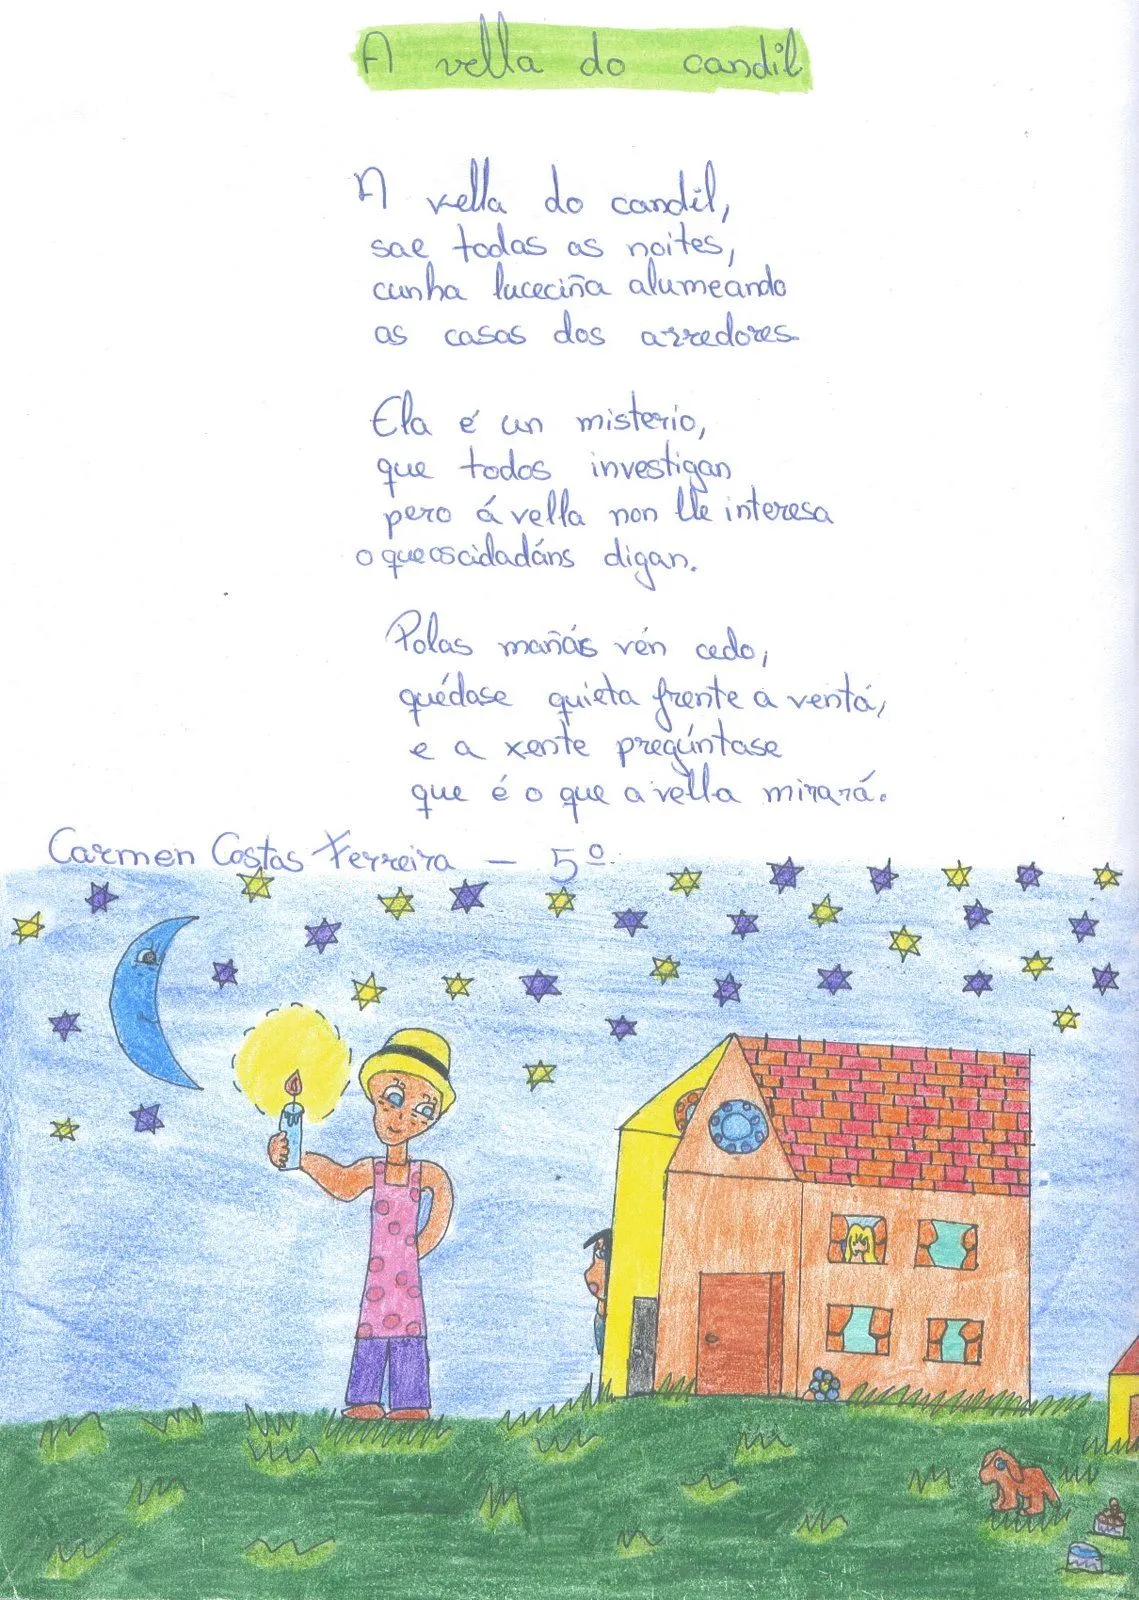 A vella do candil
A vella do candil,
sae todas as noites,
cunha luceciña alumeando
as casas dos arredores.
Ela é un misterio,
que todos investigan
pero á vella non lle interesa
o que os cidadáns digan.
Polas mañás vén cedo,
quédase quieta frente a ventá,
e a xente pregúntase
que é o que a vella mirará.
Carmen Costas Ferreira - 5º